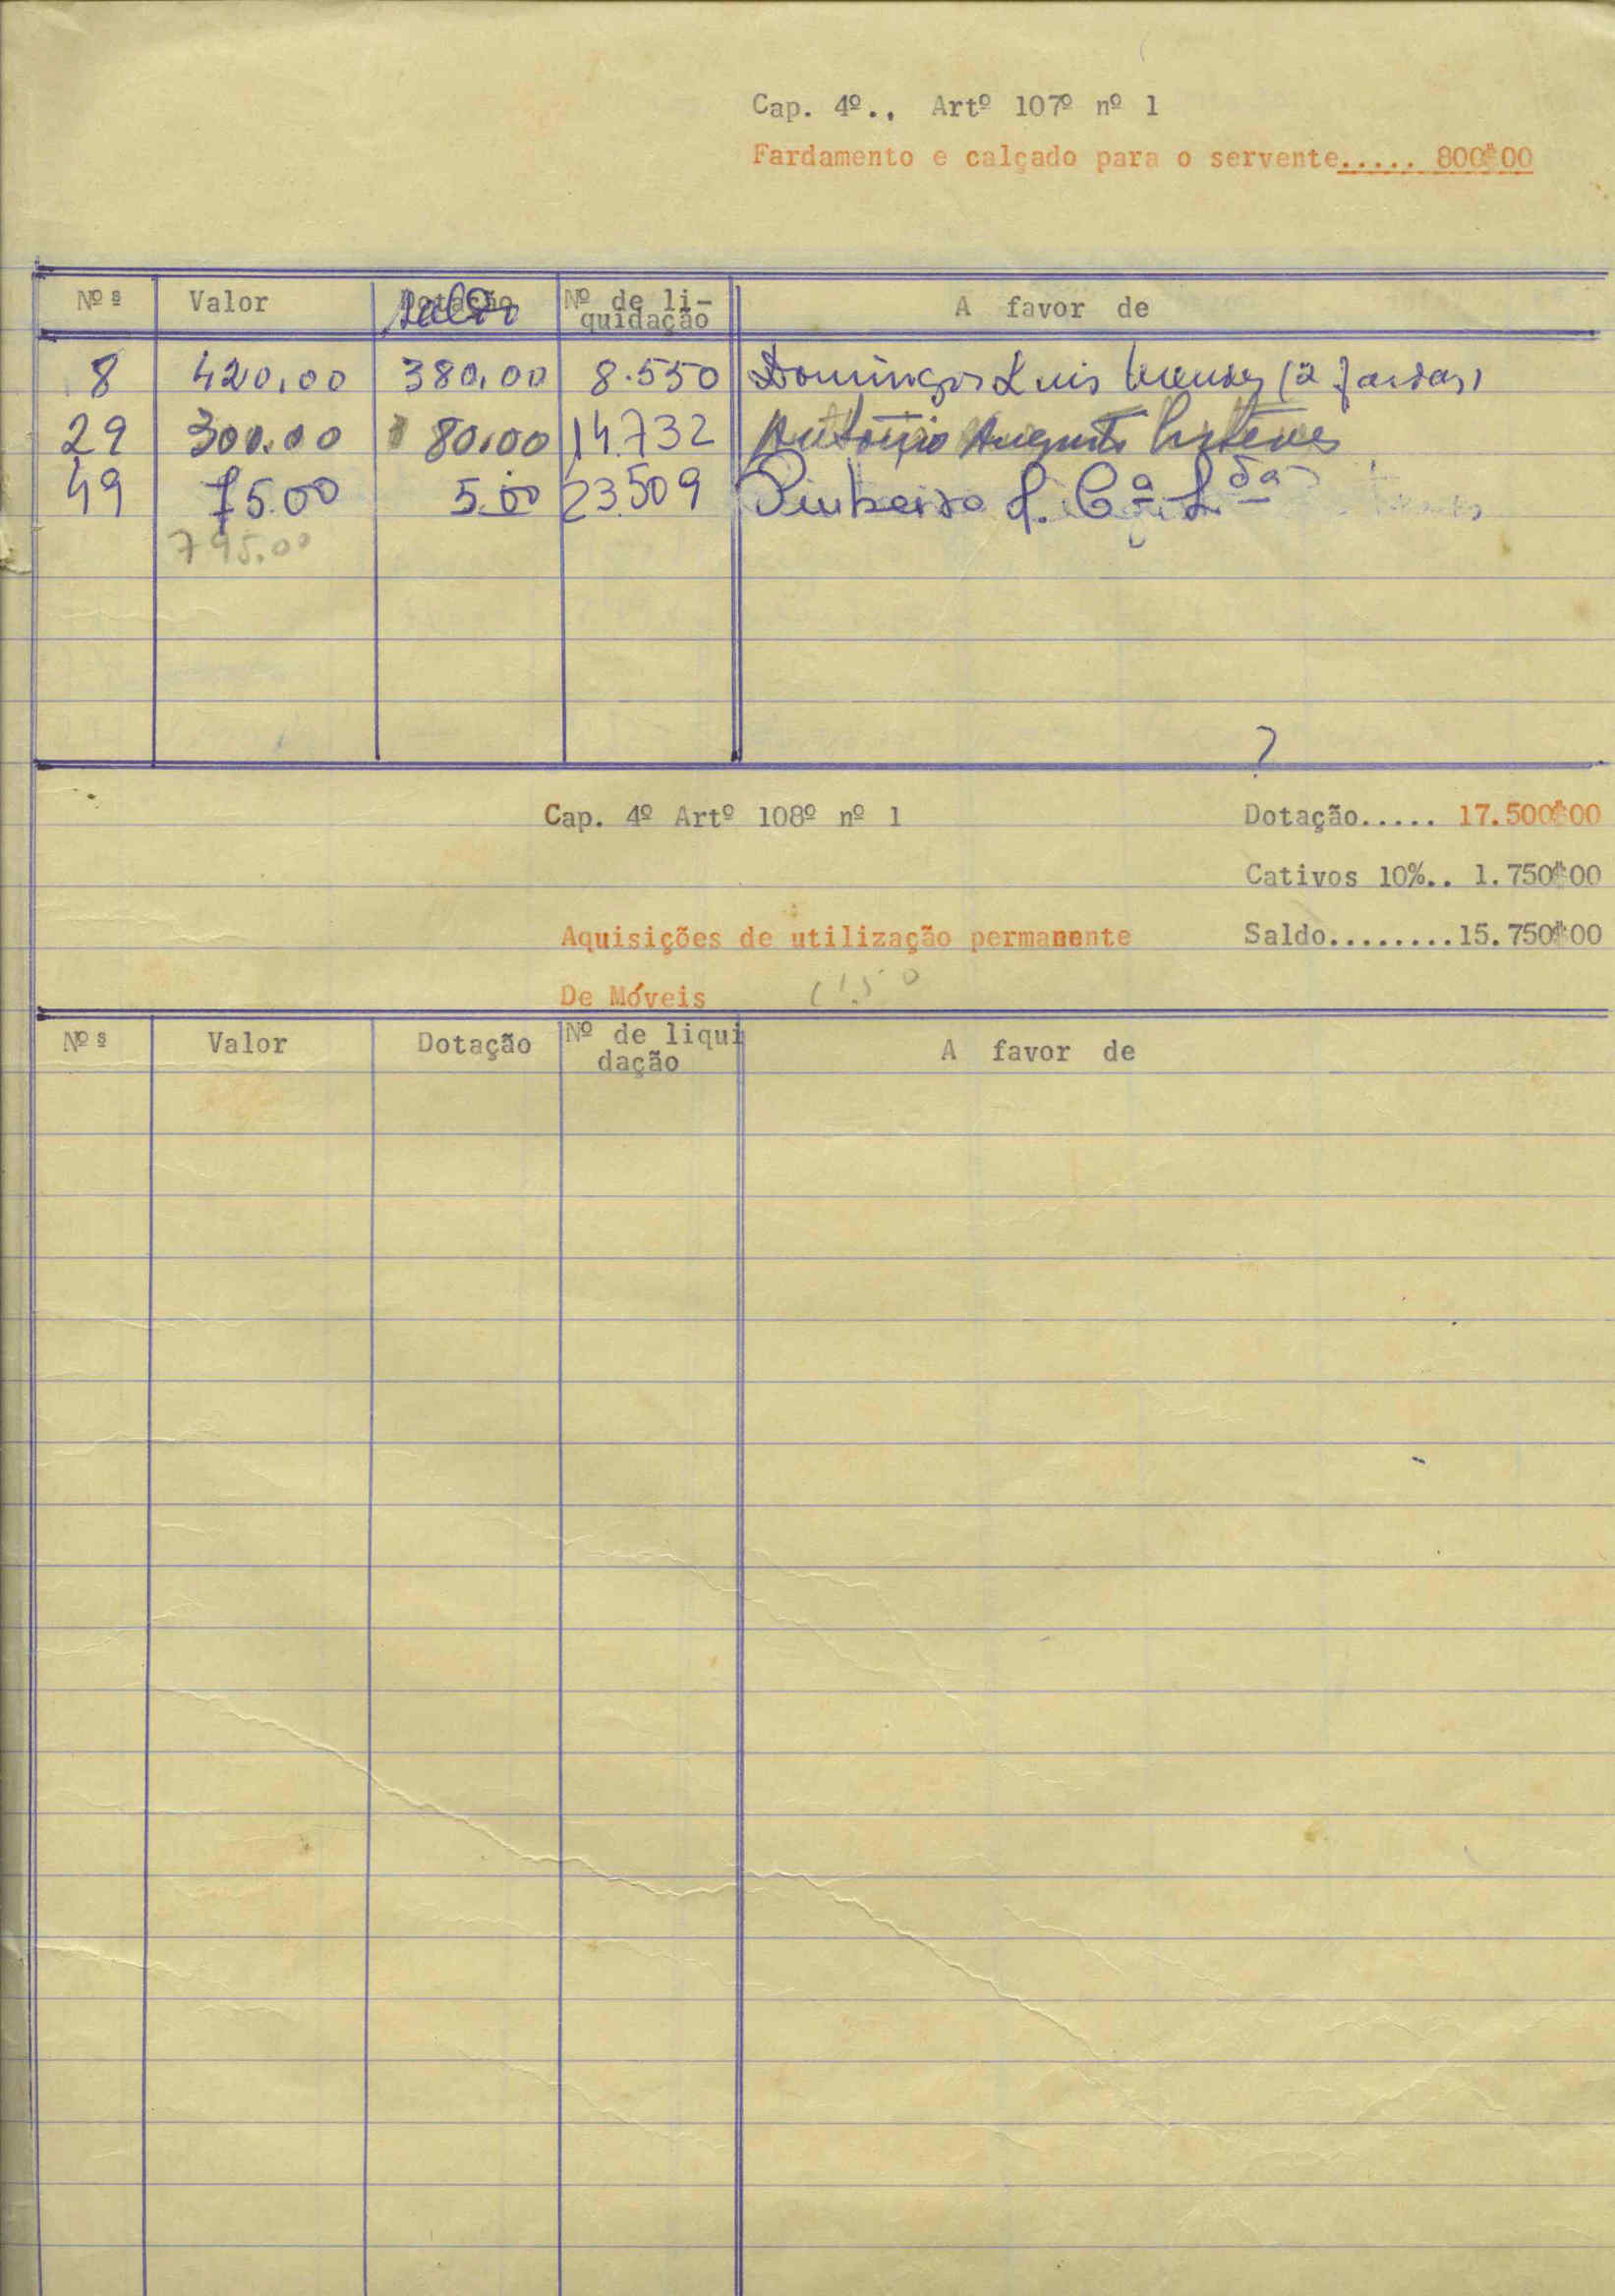 Cap. 4º., Artº 107º nº 1
Fardamento e calçado para o servente..... 800$00
Nºs Valor Saldo Nº de li-
quidação A favor de
8 420,00 380,00 8.550 Domingos Luis Mendes (2 fardas)
29 300.00 80,00 14.732 António Augusto Esteves
49 75.00 5.00 23.509 Pinheiro &. Cª Lda
795.00
?
Cap. 4º Artº 108º nº 1 Dotação..... 17.500$00
Cativos 10%.. 1.750$00
Aquisições de utilização permanente Saldo........15.750$00
De Móveis
Nºs Valor Dotação Nº de liqui
dação A favor de